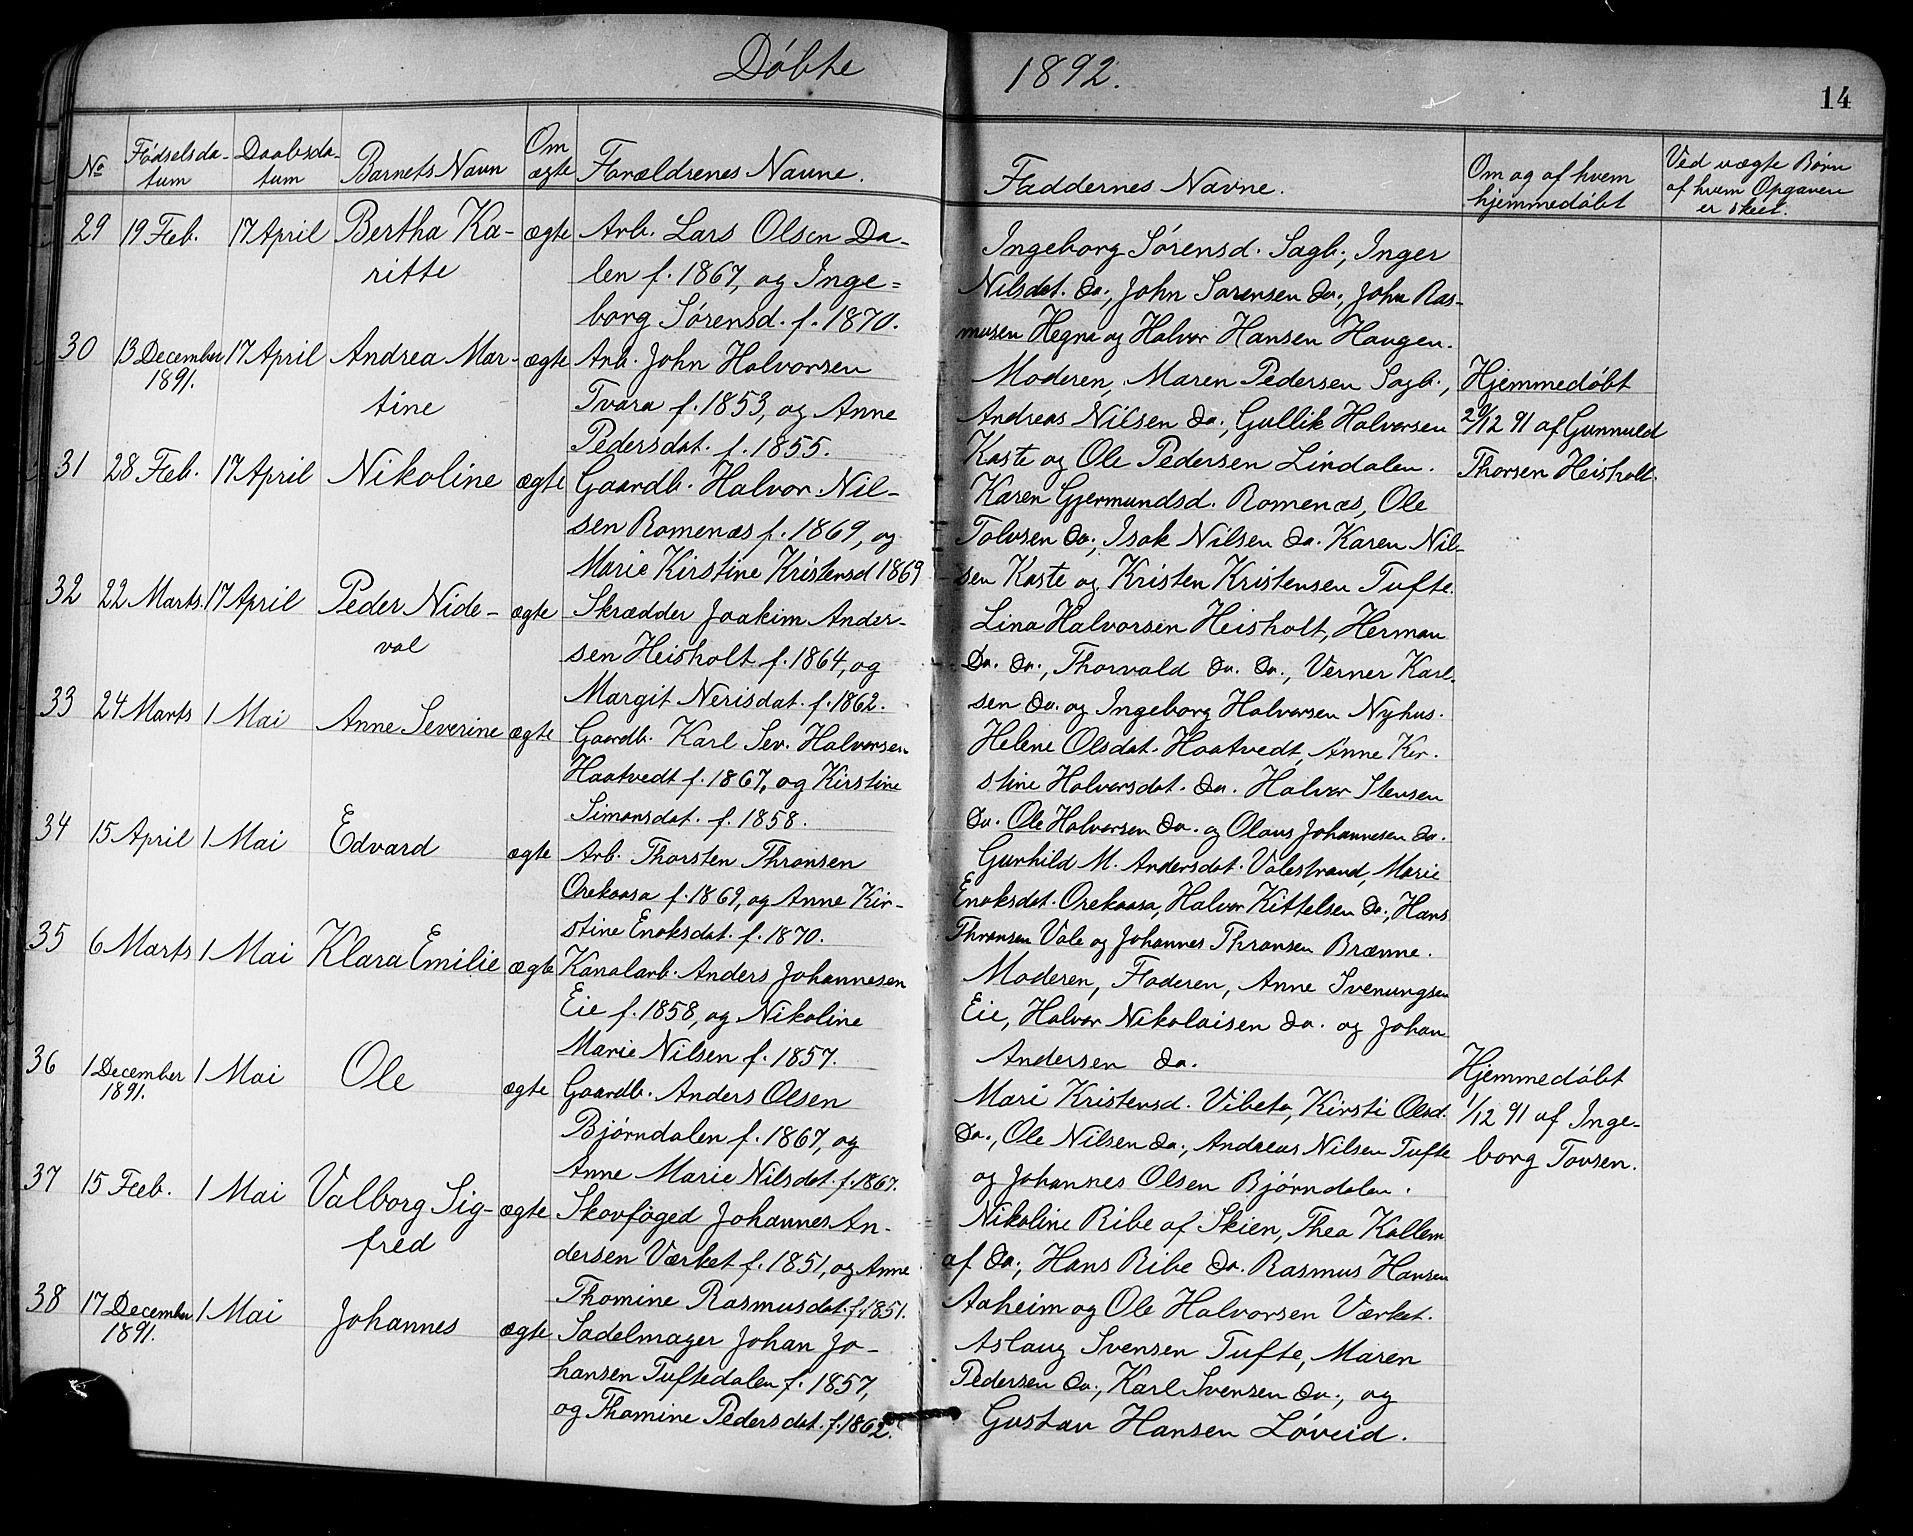 Döbte 1892.
14
No Fødselsdatum Daabsdatum Barnets Navn Om ægte Forældrenes Navne. Faddernes Navne. Om og af hvem hjemmedøbt Ved uægte Børn af hvem Opgaven er skeet.
29 19 Feb. 17 April Bertha Ka- ægte Arb. Lars Olsen Da- Ingeborg Sørensd. Sagb., Inger
ritte len f. 1867, og Inge= Nilsdat. do., John Sørensen do., John Ras-
borg Sørensd. f. 1870. musen Hegna og Halvor Hansen Haugen.
30 13 December 17 April Andrea Mar- ægte Arb. John Halvorsen Moderen, Maren Pedersen Sagb., Hjemmedøbt
1891. tine Tvara f. 1853, og Anne Andreas Nilsen do., Gullik Halvorsen 29/12 91 af Gunnuld
Pedersdat. f. 1855. Kaste og Ole Pedersen Lindalen. Thorsen Heisholt.
31 28 Feb. 17 April Nikoline ægte Gaardb. Halvor Nil- Karen Gjermundsd. Romenæs, Ole
sen Romenæs f. 1869, og Tolvsen do., Isak Nilsen do. Karen Nil-
Marie Kirstine Kristensd 1869 sen Kaste og Kristen Kristensen Tufte.
32 22 Marts. 17 April Peder Nide- ægte Skrædder Joakim Ander- Lina Halvorsen Heisholt, Herman
val sen Heisholt f. 1864, og do. do., Thorvald do. do., Verner Karl-
Margit Nerisdat. f. 1862. sen do. og Ingeborg Halvorsen Nyhus.
33 24 Marts 1 Mai Anne Severine ægte Gaardb. Karl Sev. Halvorsen Helene Olsdat. Haatvedt, Anne Kir-
Haatvedt f. 1867, og Kirstine stine Halvorsdat. do. Halvor Stensen
Simonsdat. f. 1858. do. Ole Halvorsen do. og Olaus Johannesen do.
34 15 April 1 Mai Edvard ægte Arb. Thorsten Thronsen Gunhild M. Andersdat. Valestrand, Marie
Orekaasa f. 1869, og Anne Kir- Enoksdat. Orekaasa, Halvor Kittelsen do., Hans
stine Enoksdat. f. 1870. Thronsen Vale og Johannes Thronsen Brænne.
35 6 Marts 1 Mai Klara Emilie ægte Kanalarb. Anders Johannesen Moderen, Faderen, Anne Svenungsen
Eie f. 1858, og Nikoline Eie, Halvor Nikolaisen do. og Johan
Marie Nilsen f. 1857. Andersen do.
36 1 December 1 Mai Ole ægte Gaardb. Anders Olsen Mari Kristensd. Vibeto, Kirsti Olsd. Hjemmedøbt
1891. Bjørndalen f. 1867, og do., Ole Nilsen do., Andreas Nilsen Tufte 1/12 91 af Inge-
Anne Marie Nilsdat. f. 1867. og Johannes Olsen Bjørndalen. borg Tovsen.
37 15 Feb. 1 Mai Valborg Sig- ægte Skovfoged Johannes An- Nikoline Ribe af Skien, Thea Kollem
fred dersen Værket f. 1851, og Anne af do., Hans Ribe do. Rasmus Hansen
Thomine Rasmusdat. f. 1851. Aaheim og Ole Halvorsen Værket.
38 17 December 1 Mai Johannes ægte Sadelmager Johan Jo- Aslaug Svensen Tufte, Maren
1891. hansen Tuftedalen f. 1857, Pedersen do., Karl Svensen do., og
og Thomine Pedersdat. f. 1862. Gustav Hansen Løveid.